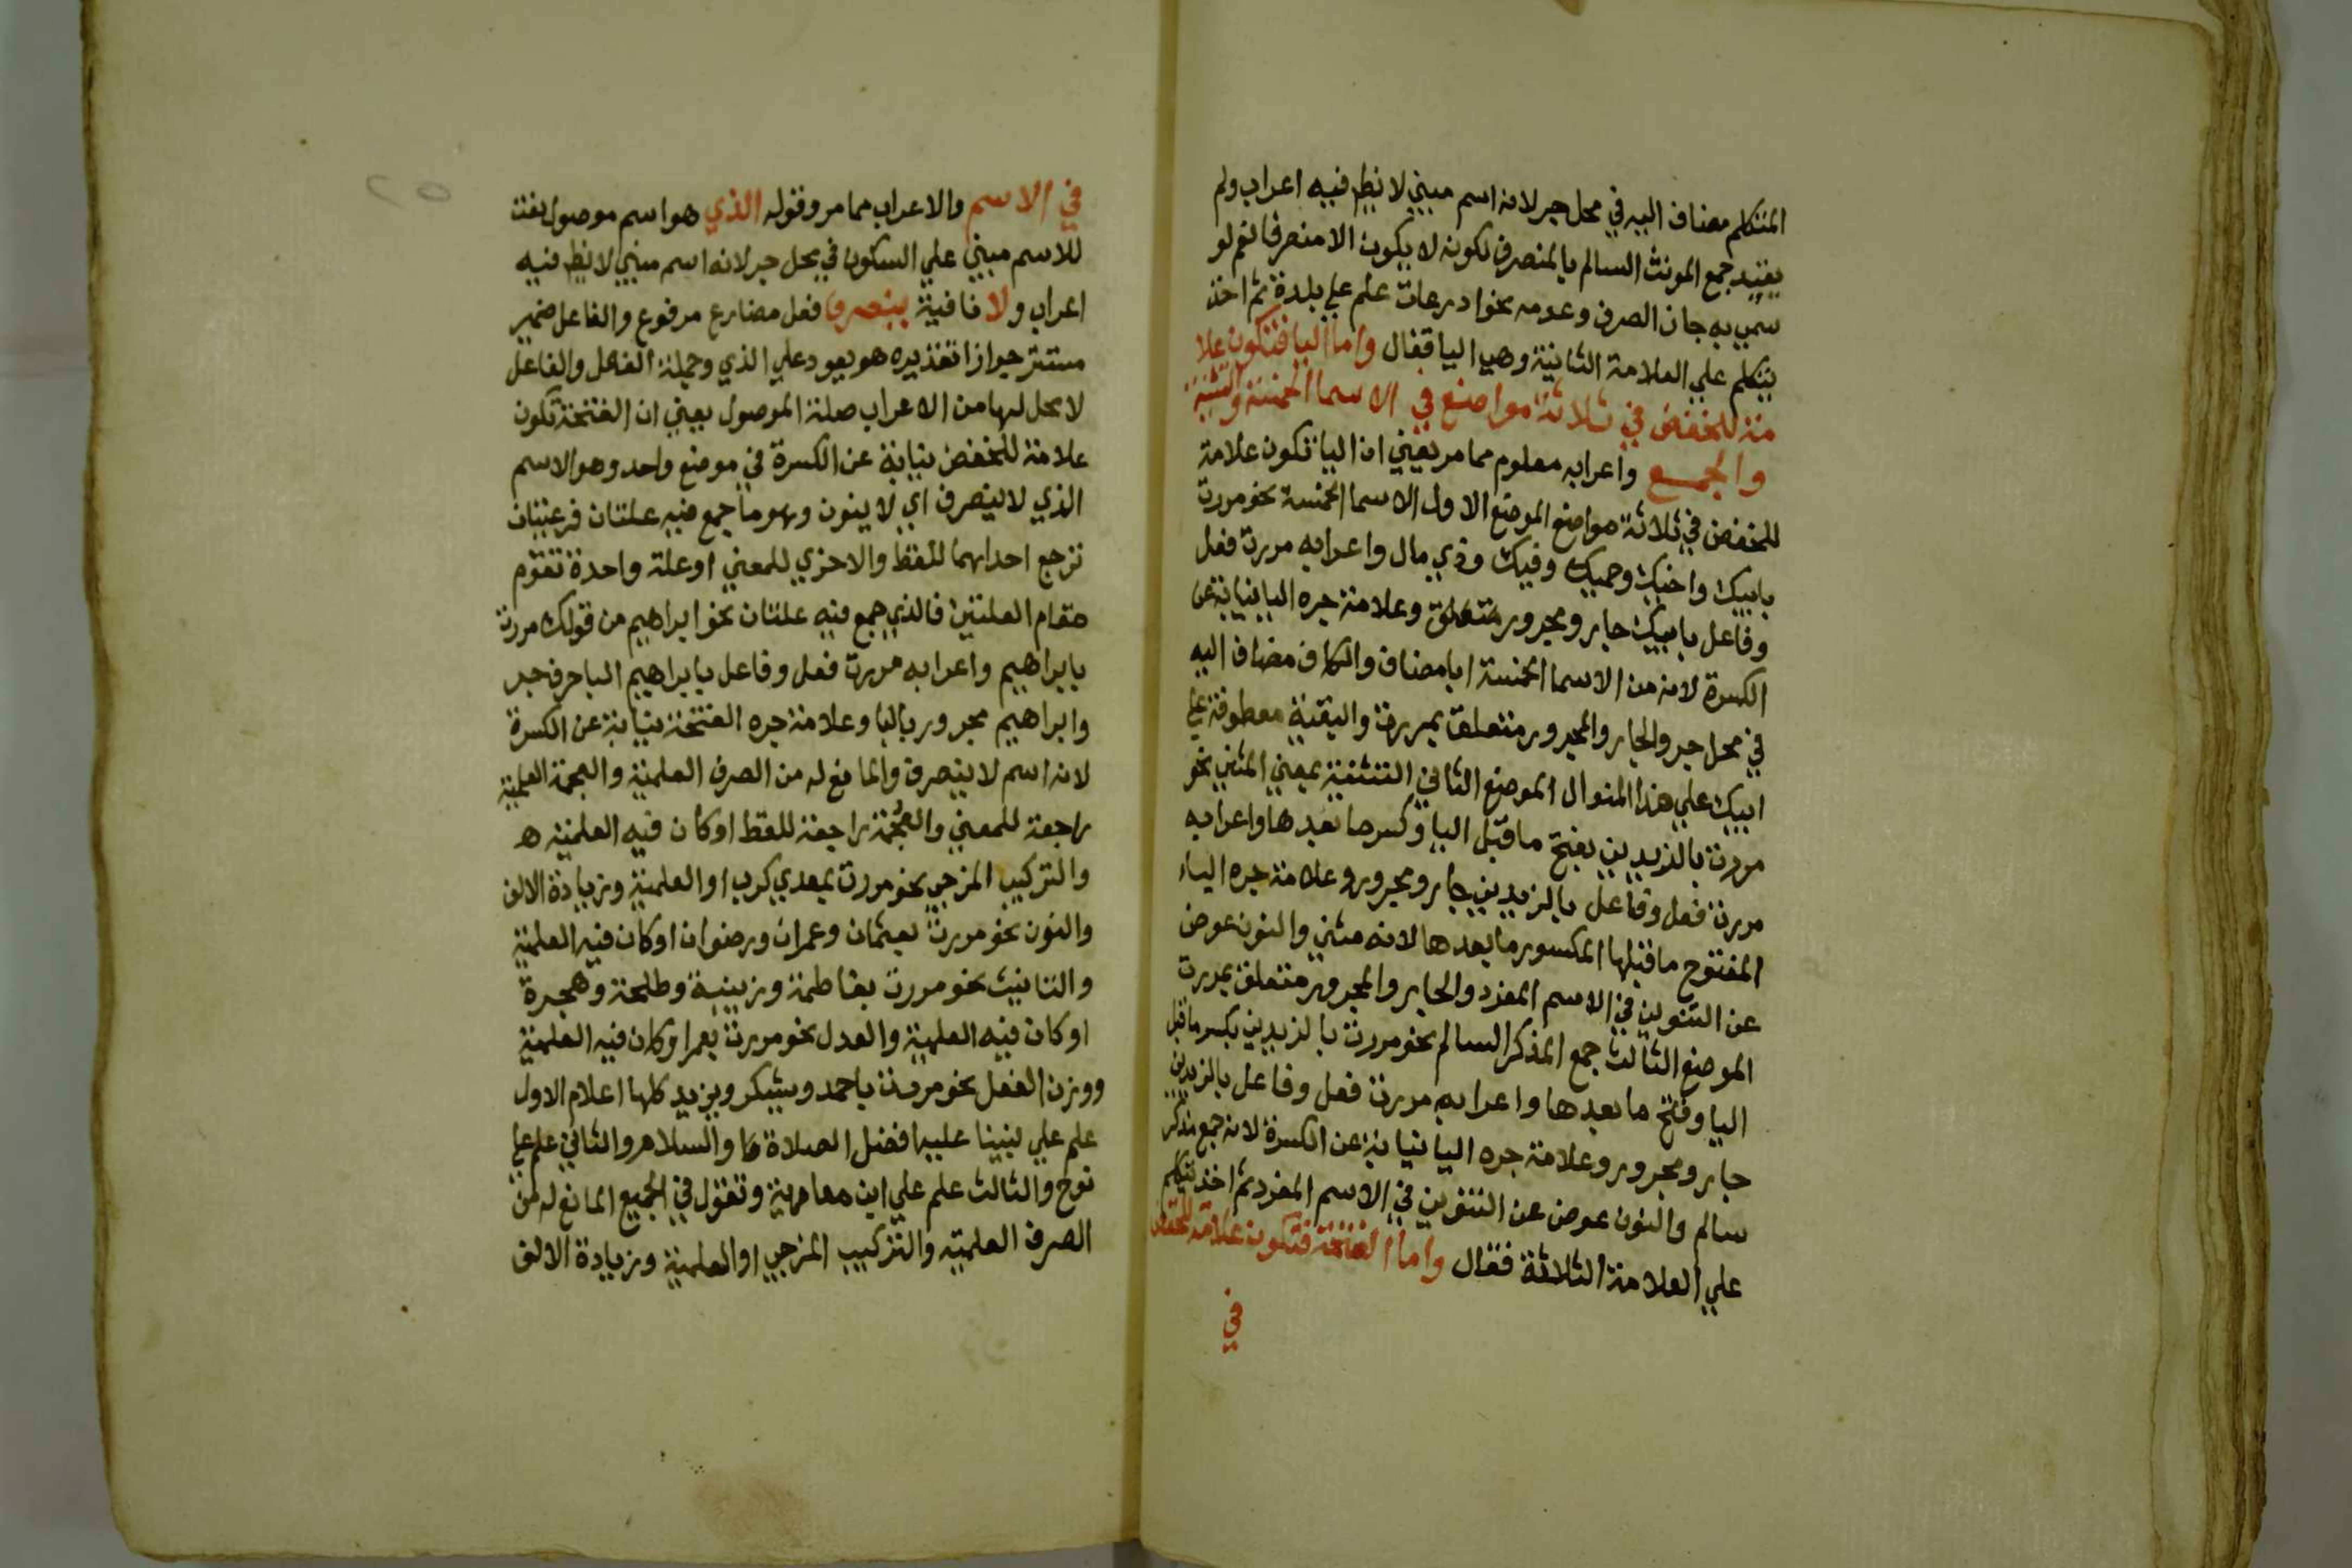 المتكلم مضاف اليه في محل جر لانه اسم مبني لا يظهر فيه اعراب ولم
يقيد جمع المونث السالم بالمنصرف لكونه لا يكون الا منصرفا نعم لو
سمي به جان الصرف وعدمه نحو ادرعات علم علي بلدة ثم اخذ
يتكلم علي العلامة الثانية وهي اليا فقال واما اليا فتكون علا
مة للخفض في ثلاثة مواضع في الاسما الخمسة والتثنية
والجمع واعرابه معلوم مما مر يعني ان اليا تكون علامة
للخفض في ثلاثة مواضع الموضع الاول الاسما الخمسة نحو مررت
بابيك واخيك وحميك وفيك وذي مال واعرابه مررت فعل
وفاعل بابيك جار ومجرور متعلق وعلامة جره اليا نيابة عن
الكسرة لانه من الاسما الخمسة ابا مضاف والكاف مضاف اليه
في محل جر والجار والمجرور متعلق بمررت والبقية معطوفة علي
ابيك علي هذا المنوال الموضع الثاني التثنية بمعني المثني نحو
مررت بالزيدين بفتح ما قبل اليا وكسر ما بعدها واعرابه
مررت فعل وفاعل بالزيدين جار ومجرور وعلامة جره الياء
المفتوح ما قبلها المكسور ما بعدها لانه مثني والنون عوض
عن التنوين في الاسم المفرد والجار والمجرور متعلق بمررت
الموضع الثالث جمع المذكر السالم نحو مررت بالزيدين بكسر ما قبل
اليا وفتح ما بعدها واعرابه مررت فعل وفاعل بالزيدين
جار ومجرور وعلامة جره اليا نيابة عن الكسرة لانه جمع مذكر
سالم والنون عوض عن التنوين في الاسم المفرد ثم اخذ يتكلم
علي العلامة الثلاثة فقال واما الفتحة فتكون علامة للخفض
في
٢٥
في الاسم والاعراب مما مر وقوله الذي هو اسم موصول نعت
للاسم مبني علي السكون في محل جر لانه اسم مبني لا يظهر فيه
اعراب ولا نافية ينصرف فعل مضارع مرفوع والفاعل ضمير
مستتر جوازا تقديره هو يعود علي الذي وجملة الفعل والفاعل
لا محل لها من الاعراب صلة الموصول يعني ان الفتحة تكون
علامة للخفض نيابة عن الكسرة في موضع واحد وهو الاسم
الذي لا ينصرف اي لا ينون وهو ما جمع فيه علتان فرعيتان
ترجع احداهما للفظ والاخري للمعني او علة واحدة تقوم
مقام العلتين فالذي جمع فيه علتان نحو ابراهيم من قولك مررت
بابراهيم واعرابه مررت فعل وفاعل بابراهيم البا حرف جر
وابراهيم مجرور بالبا وعلامة جره الفتحة نيابة عن الكسرة
لانه اسم لا ينصرف والمانع له من الصرف العلمية والعجمة العلمية
راجعة للمعني والعجمة راجعة للفظ او كان فيه العلمية ه
والتركيب المزجي نحو مررت بمعدي كرب او العلمية وزيادة الالف
والنون نحو مررت بعثمان وعمران ورضوان او كان فيه العلمية
والتانيث نحو مررت بفاطمة وزينبة وطلحة وهجرة
او كان فيه العلمية والعدل نحو مررت بعمر او كان فيه العلمية
ووزن الفعل نحو مررت باحمد ويشكر ويزيد كلها اعلام الاول
علم علي نبينا عليه افضل الصلاة والسلام والثاني علم علي
نوح والثالث علم علي ابن معاوية وتقول في الجميع المانع له من
الصرف العلمية والتركيب المزجي او العلمية وزيادة الالف